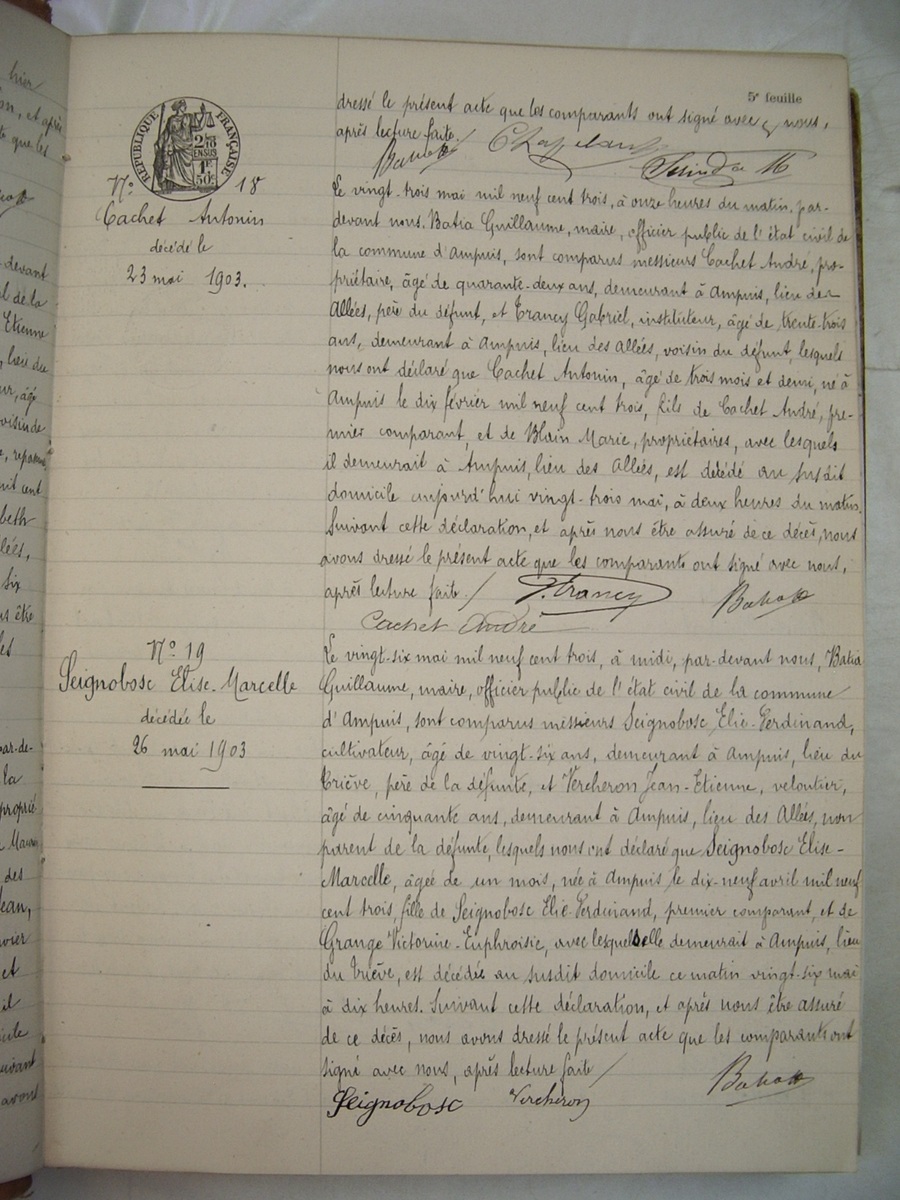 5e feuille
dressé le présent acte que les comparants ont signé avec nous,
après lecture faite.
RÉPUBLIQUE FRANÇAISE
N° 18
Cachet Antonin
décédé le
23 mai 1903.
Le vingt-trois mai mil neuf cent trois, à onze heures du matin, par-
devant nous, Batia Guillaume, maire, officier public de l'état civil de
la commune d'Ampuis, sont comparus messieurs Cachet André, pro-
priétaire, âgé de quarante-deux ans, demeurant à Ampuis, lieu des
Allées, père du défunt, et Trancy Gabriel, instituteur, âgé de trente-trois
ans, demeurant à Ampuis, lieu des Allées, voisin du défunt, lesquels
nous ont déclaré que Cachet Antonin, âgé de trois mois et demi, né à
Ampuis le dix février mil neuf cent trois, fils de Cachet André, pre-
mier comparant, et de Blain Marie, propriétaires, avec lesquels
il demeurait à Ampuis, lieu des Allées, est décédé au susdit
domicile aujourd'hui vingt-trois mai, à deux heures du matin.
Suivant cette déclaration, et après nous être assuré de ce décès, nous
avons dressé le présent acte que les comparants ont signé avec nous,
après lecture faite. /
Cachet André
N° 19
Seignobosc Elise-Marcelle
décédée le
26 mai 1903
Le vingt-six mai mil neuf cent trois, à midi, par-devant nous, Batia
Guillaume, maire, officier public de l'état civil de la commune
d'Ampuis, sont comparus messieurs Seignobosc Elie-Ferdinand,
cultivateur, âgé de vingt-six ans, demeurant à Ampuis, lieu du
Triève, père de la défunte, et Vercheron Jean-Etienne, veloutier,
âgé de cinquante ans, demeurant à Ampuis, lieu des Allées, non
parent de la défunte, lesquels nous ont déclaré que Seignobosc Elise-
Marcelle, âgée de un mois, née à Ampuis le dix-neuf avril mil neuf
cent trois, fille de Seignobosc Elie-Ferdinand, premier comparant, et de
Grange Victorine-Euphroisie, avec lesquels elle demeurait à Ampuis, lieu
du Triève, est décédée au susdit domicile ce matin vingt-six mai
à dix heures. Suivant cette déclaration, et après nous être assuré
de ce décès, nous avons dressé le présent acte que les comparants ont
signé avec nous, après lecture faite /
Seignobosc Vercheron